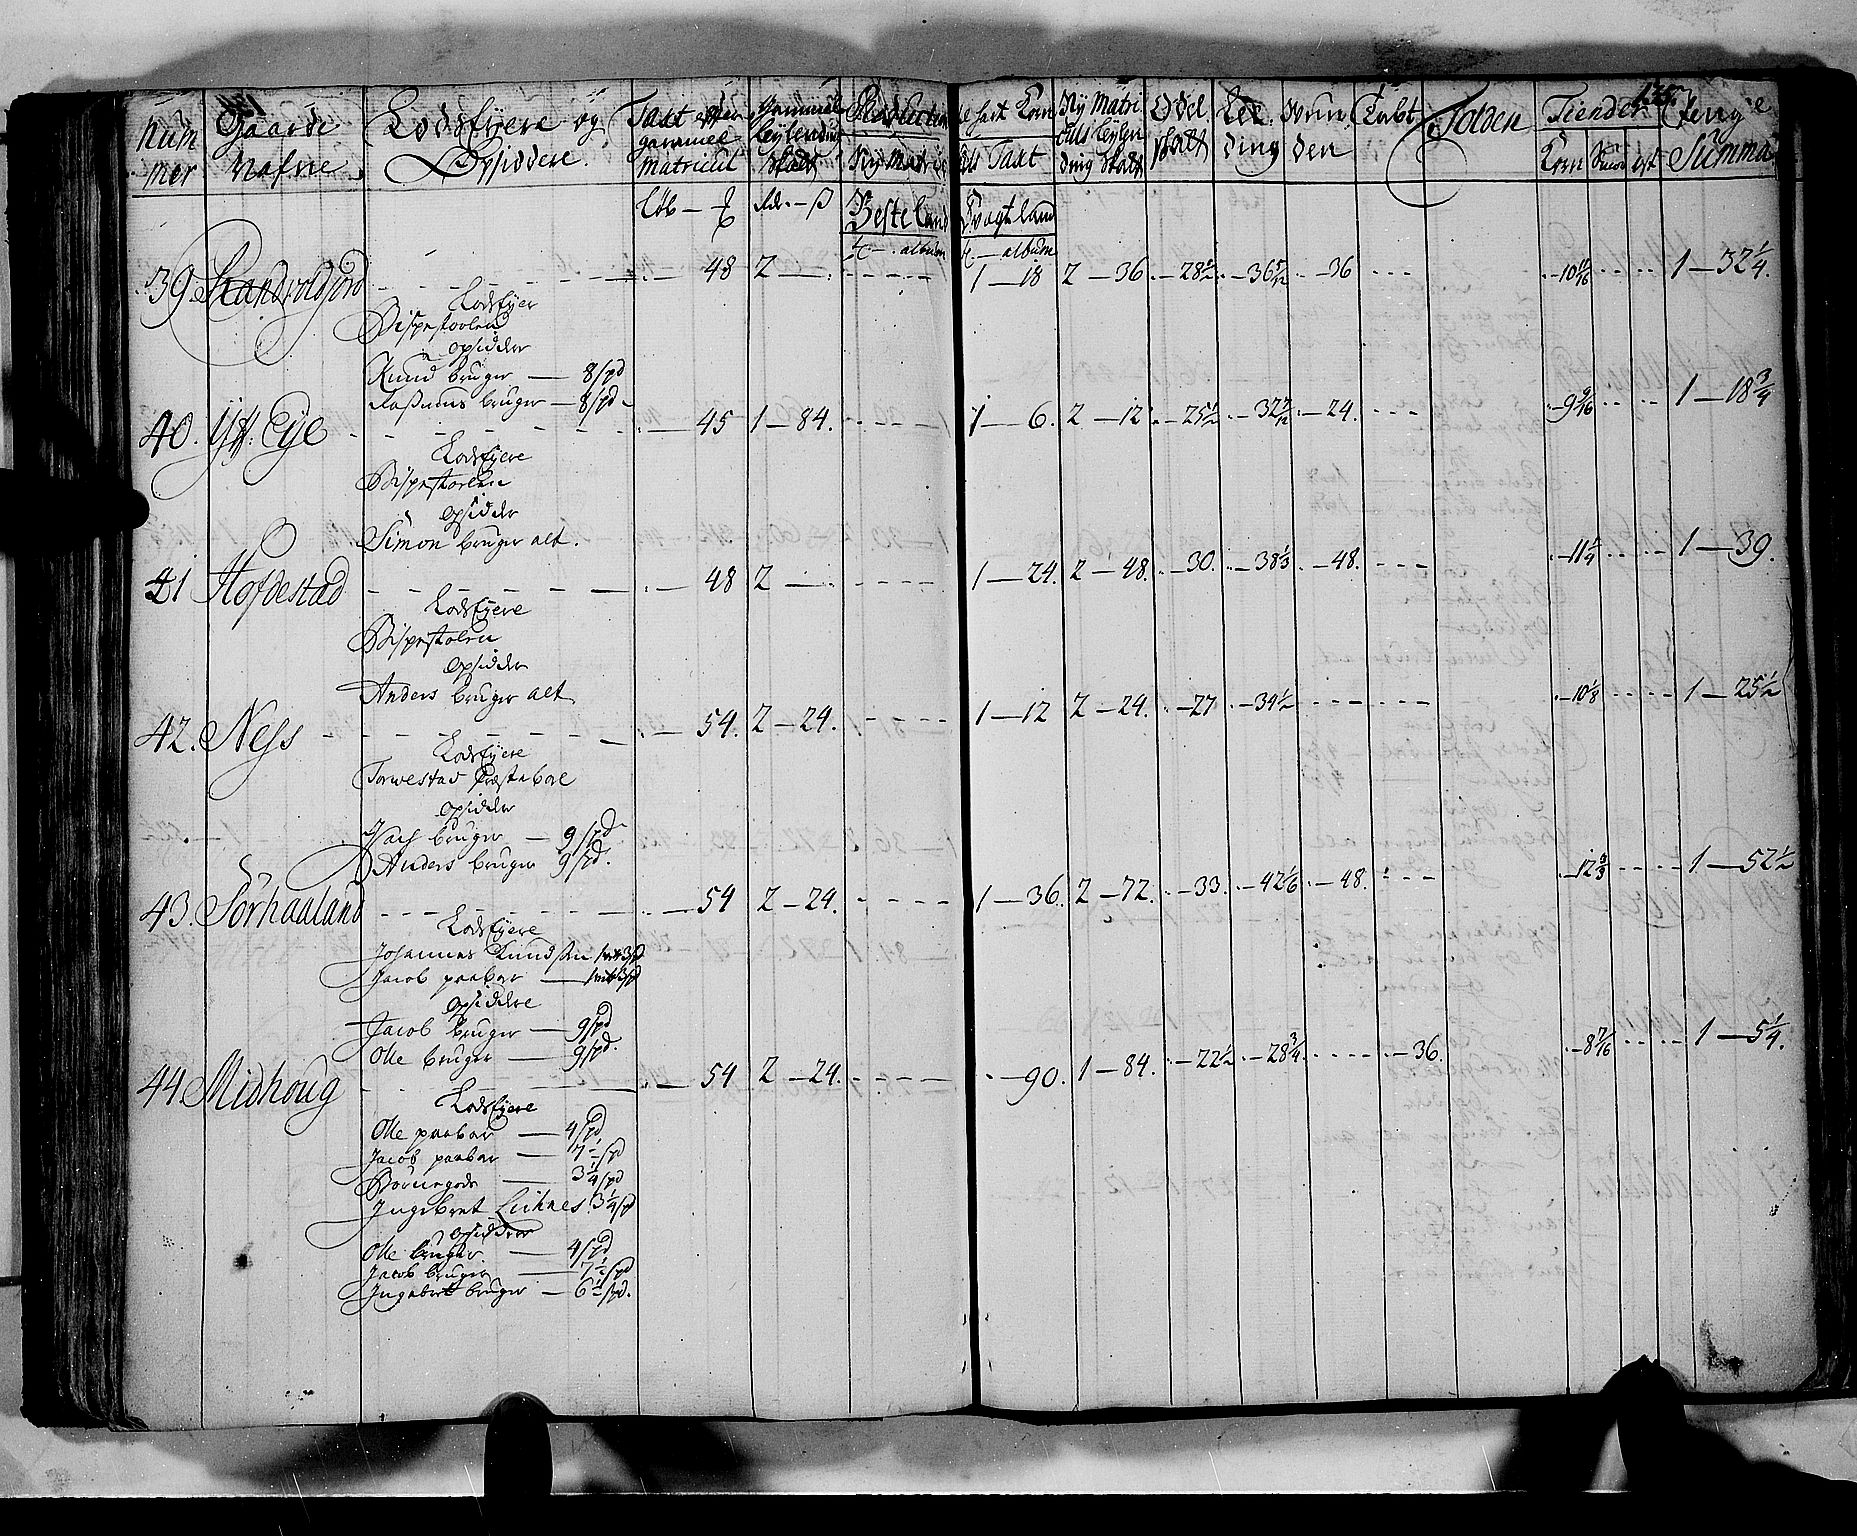 Num mer
Gaarde Nafne
Lodseyere og Opsiddere
Taxt efter gammel Matricul
Gammel Leylending Skatt
Ny Matri
Taxt
Ny Matri culs Leylen ding Skatt
Odel skatt
Led ding
Vun den
Told en
Tiender
Korn
ost
Penge Summa
Löb
Rdr. — ß
Beste Land
Svagt land
album
album
39 — 48 2 — 1 — 18 2 — 36 — 28½ — 36 5/12 — 36 — 10 11/16 1 — 32¼.
LodsEyer
Bispestoelen
opsidder
Knud bruger — 8 spd
Rasmus bruger — 8 spd
40. Ytt. Eye — 45 1 — 84. 1 — 6. 2 — 12 — 25½ — 32 7/12 — 24. — 9 9/16 1 — 18¾
LodsEyere
Bispestoelen
opsidder
Simon bruger alt.
41 Hofdestad — 48 2 — 1 — 24. 2 — 48. — 30. — 38⅓ — 48. — 11¼ 1 — 39.
LodsEyere
Bispestolen
opsidder
Anders bruger alt
42. Ness — 54. 2 — 24. 1 — 12 2 — 24. — 27 — 34½ — 10⅛ 1 — 25½
LodsEyere
Torvestad Præstebole
opsidder
bruger — 9 spd
Anders bruger 9 spd.
43. Sörhaaland — 54 2 — 24. 1 — 36. 2 — 72. — 33. — 42⅙ — 48. — 12 1 — 52½
LodsEyere
Johannes Knudsen
Jacob paaboer
opsiddere
Jacob bruger — 9 spd
Olle bruger — 9 spd.
44 Midhoug — 54 2 — 24. — 90. 1 — 84. — 22½ — 28¾ — 36. — 8 7/16 1 — 5¼.
LodsEyere
Olle paaboer — 4 spd
Jacob paaboer — 7½ spd
Bondegods — 3¼ spd
Ingebret 3¼ spd
opsiddere
Olle bruger — 4 spd
Jacob bruger — 7½ spd
Ingebret bruger — 6½ spd.